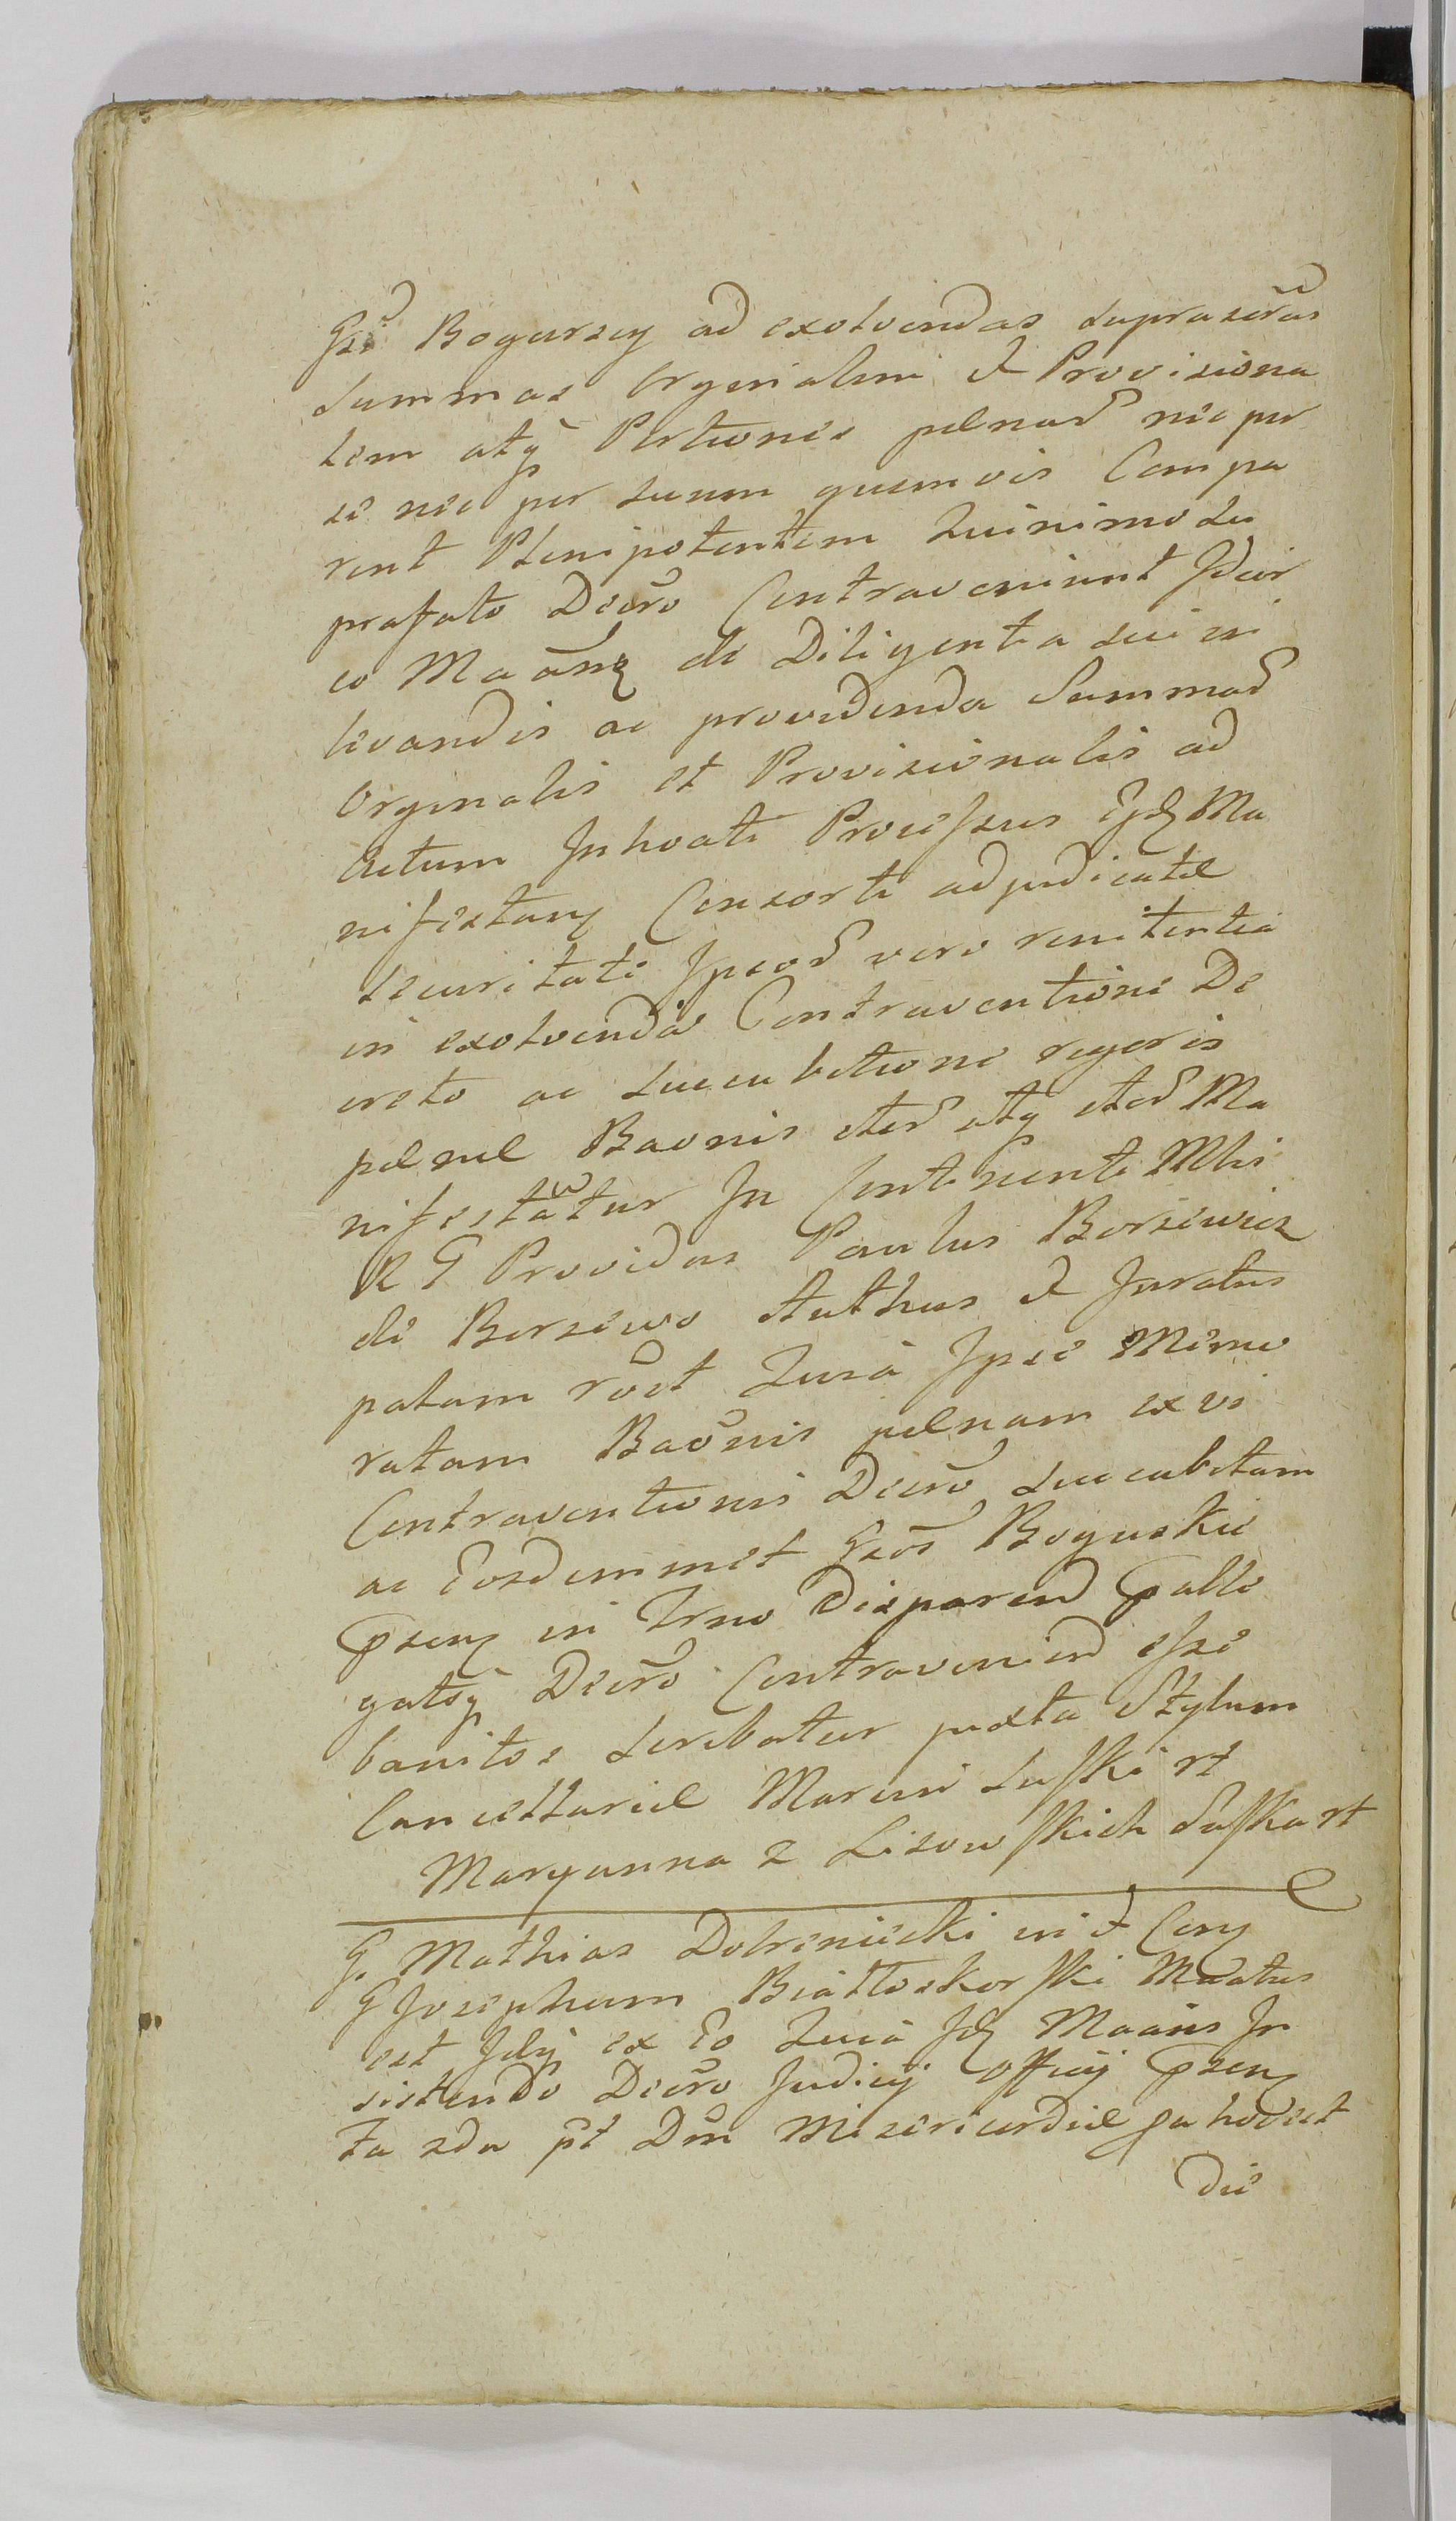 Gsi Bogurscy ad exolvendas suprascras
Summas Orginalem et Provisiona
lem atq Portiones pelnas nec per
se nec per suum quemvis Compa
rent Plenipotentem Quinimo Su
prafato Decro Contraveniunt Idcir
co Maanz de Diligentia sui in
levandis ac providenda Summas
Orginalis et Provisionalis ad
Actum Inhoati Processus Ejq Ma
nifestanz Consorti adjudicatae
securitate Ipsos vero renitentia
in exolvenda Contraventione De
creto ac succubitione rigoris
pelnae Baonis iter atq iter Ma
nifestatur In Continenti Mlis
R G Providus Paulus Borsewicz
de Borzewo Authus et Juratus
palam roct Quia Ipse Memo
ratam Baonis pelnam ex vi
Contraventionis Decro succubitam
ac Eosdemmet Gsos Boguskie
psenz in Trno Disparend Pallo
gatsq Decro Contraveniend esse
banitos scribatur juxta Stylum
Cancellariae Marcin Suski rt
Maryanna z Lisowskich Suska rt
G. Mathias Dobrenicki in et Conz
G Josephum Biatloskorski Maatus
est Idq ex Eo Quia Idz Maans In
sistendo Decro Judicij Officij psenz
ta zda pt Dm Misericordiae pa hoc est
die